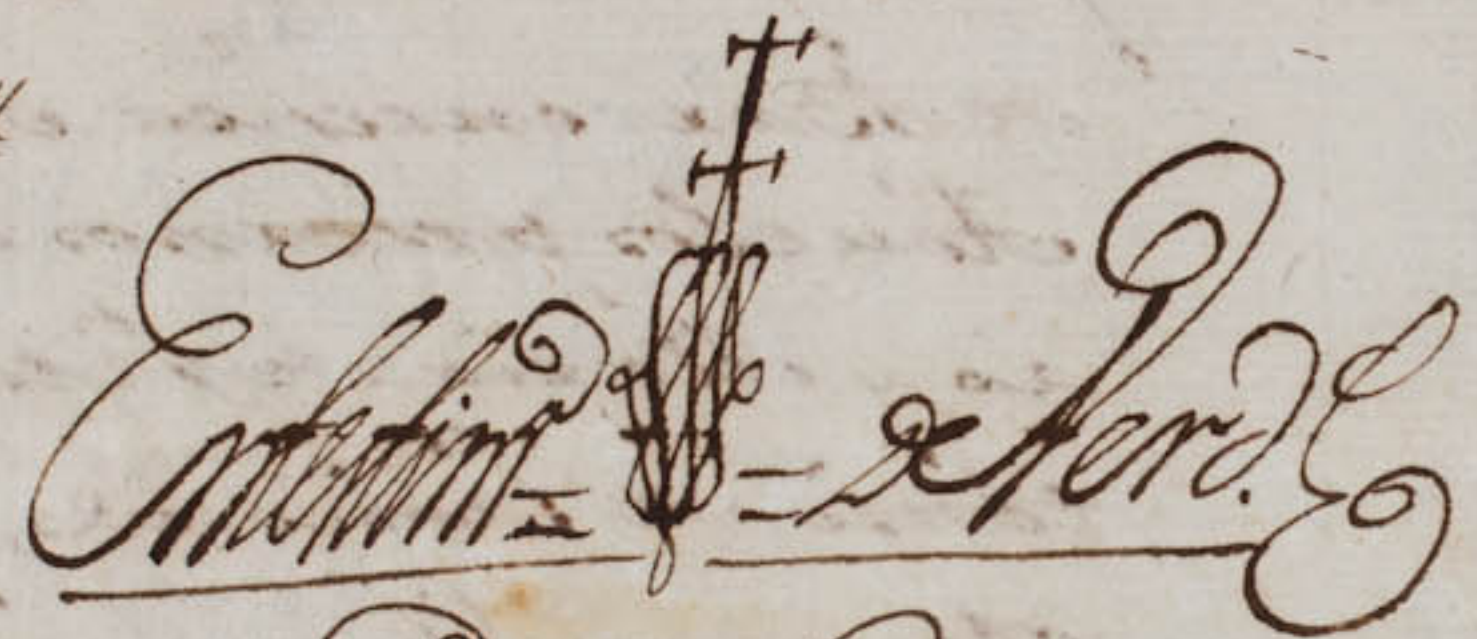 En testimº = = de Verd.